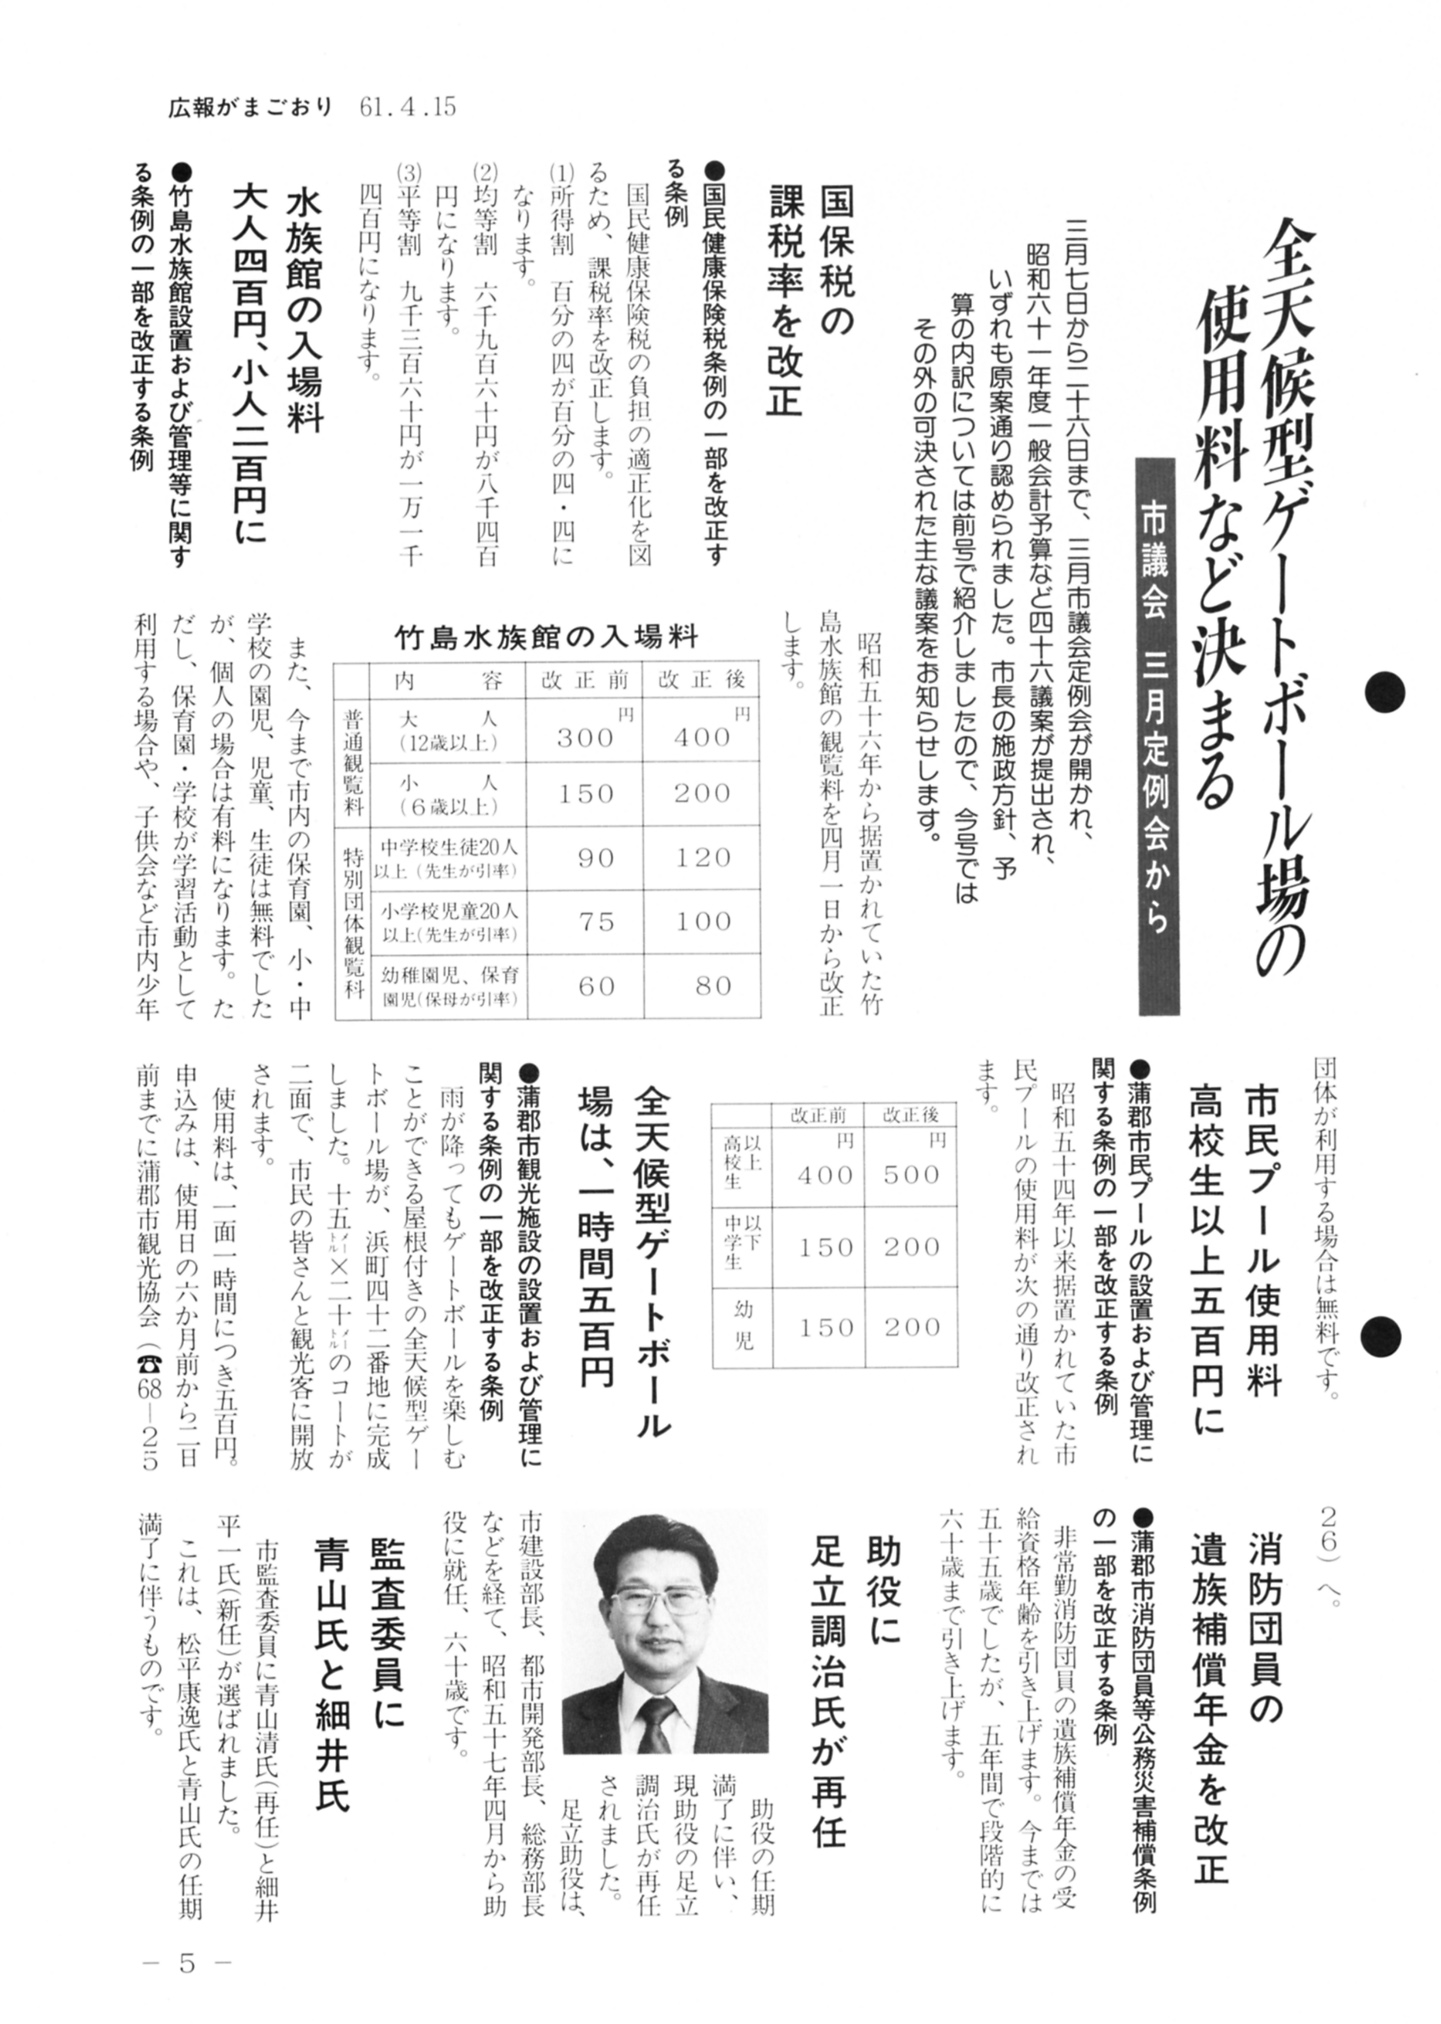 広報がまごおり 61.4.15
全天候型ゲートボール場の
使用料など決まる
市議会 三月定例会から
三月七日から二十六日まで、三月市議会定例会が開かれ、
昭和六十一年度一般会計予算など四十六議案が提出され、
いずれも原案通り認められました。市長の施政方針、予
算の内訳については前号で紹介しましたので、今号では
その外の可決された主な議案をお知らせします。
国保税の
課税率を改正
●国民健康保険税条例の一部を改正す
る条例
国民健康保険税の負担の適正化を図
るため、課税率を改正します。
(1)所得割 百分の四が百分の四・四に
なります。
(2)均等割 六千九百六十円が八千四百
円になります。
(3)平等割 九千三百六十円が一万一千
四百円になります。
水族館の入場料
大人四百円、小人二百円に
●竹島水族館設置および管理等に関す
る条例の一部を改正する条例
昭和五十六年から据置かれていた竹
島水族館の観覧料を四月一日から改正
します。
竹島水族館の入場料
内容 改正前 改正後
普通観覧料
大人 (12歳以上) 300円 400円
小人 (6歳以上) 150 200
特別団体観覧料
中学校生徒20人以上(先生が引率) 90 120
小学校児童20人以上(先生が引率) 75 100
幼稚園児、保育園児(保母が引率) 60 80
また、今まで市内の保育園、小・中
学校の園児、児童、生徒は無料でした
が、個人の場合は有料になります。た
だし、保育園・学校が学習活動として
利用する場合や、子供会など市内少年
団体が利用する場合は無料です。
市民プール使用料
高校生以上五百円に
●蒲郡市民プールの設置および管理に
関する条例の一部を改正する条例
昭和五十四年以来据置かれていた市
民プールの使用料が次の通り改正され
ます。
改正前 改正後
高校生以上 400円 500円
中学生以下 150 200
幼児 150 200
全天候型ゲートボール
場は、一時間五百円
●蒲郡市観光施設の設置および管理に
関する条例の一部を改正する条例
雨が降ってもゲートボールを楽しむ
ことができる屋根付きの全天候型ゲー
トボール場が、浜町四十二番地に完成
しました。十五メートル×二十メートルのコートが
二面で、市民の皆さんと観光客に開放
されます。
使用料は、一面一時間につき五百円。
申込みは、使用日の六か月前から二日
前までに蒲郡市観光協会(☎68―25
26)へ。
消防団員の
遺族補償年金を改正
●蒲郡市消防団員等公務災害補償条例
の一部を改正する条例
非常勤消防団員の遺族補償年金の受
給資格年齢を引き上げます。今までは
五十五歳でしたが、五年間で段階的に
六十歳まで引き上げます。
助役に
足立調治氏が再任
助役の任期
満了に伴い、
現助役の足立
調治氏が再任
されました。
足立助役は、
市建設部長、都市開発部長、総務部長
などを経て、昭和五十七年四月から助
役に就任、六十歳です。
監査委員に
青山氏と細井氏
市監査委員に青山清氏(再任)と細井
平一氏(新任)が選ばれました。
これは、松平康逸氏と青山氏の任期
満了に伴うものです。
－5－